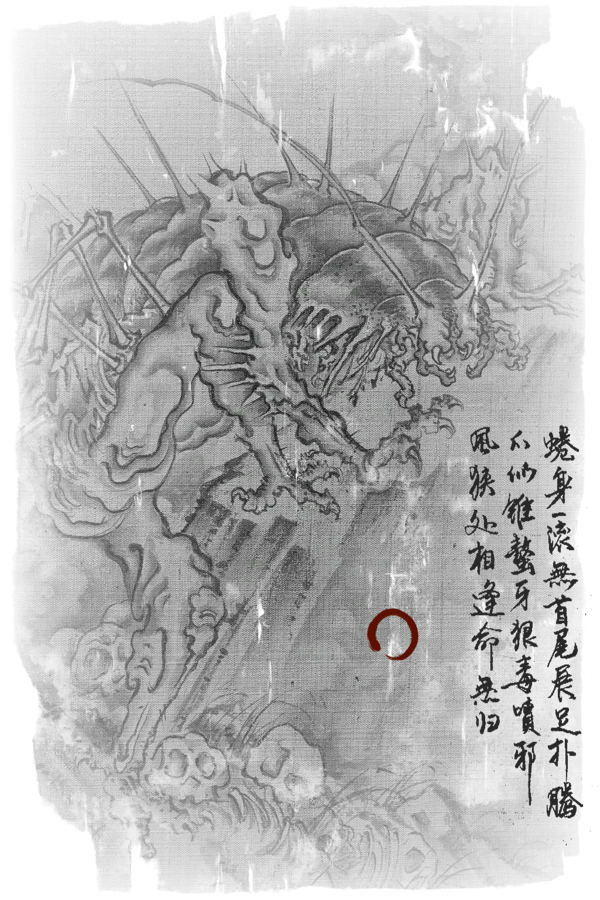 蜷身一滚無首尾展足扑腾
爪似锥螯牙狠毒噴邪
風狭处相逢命無归